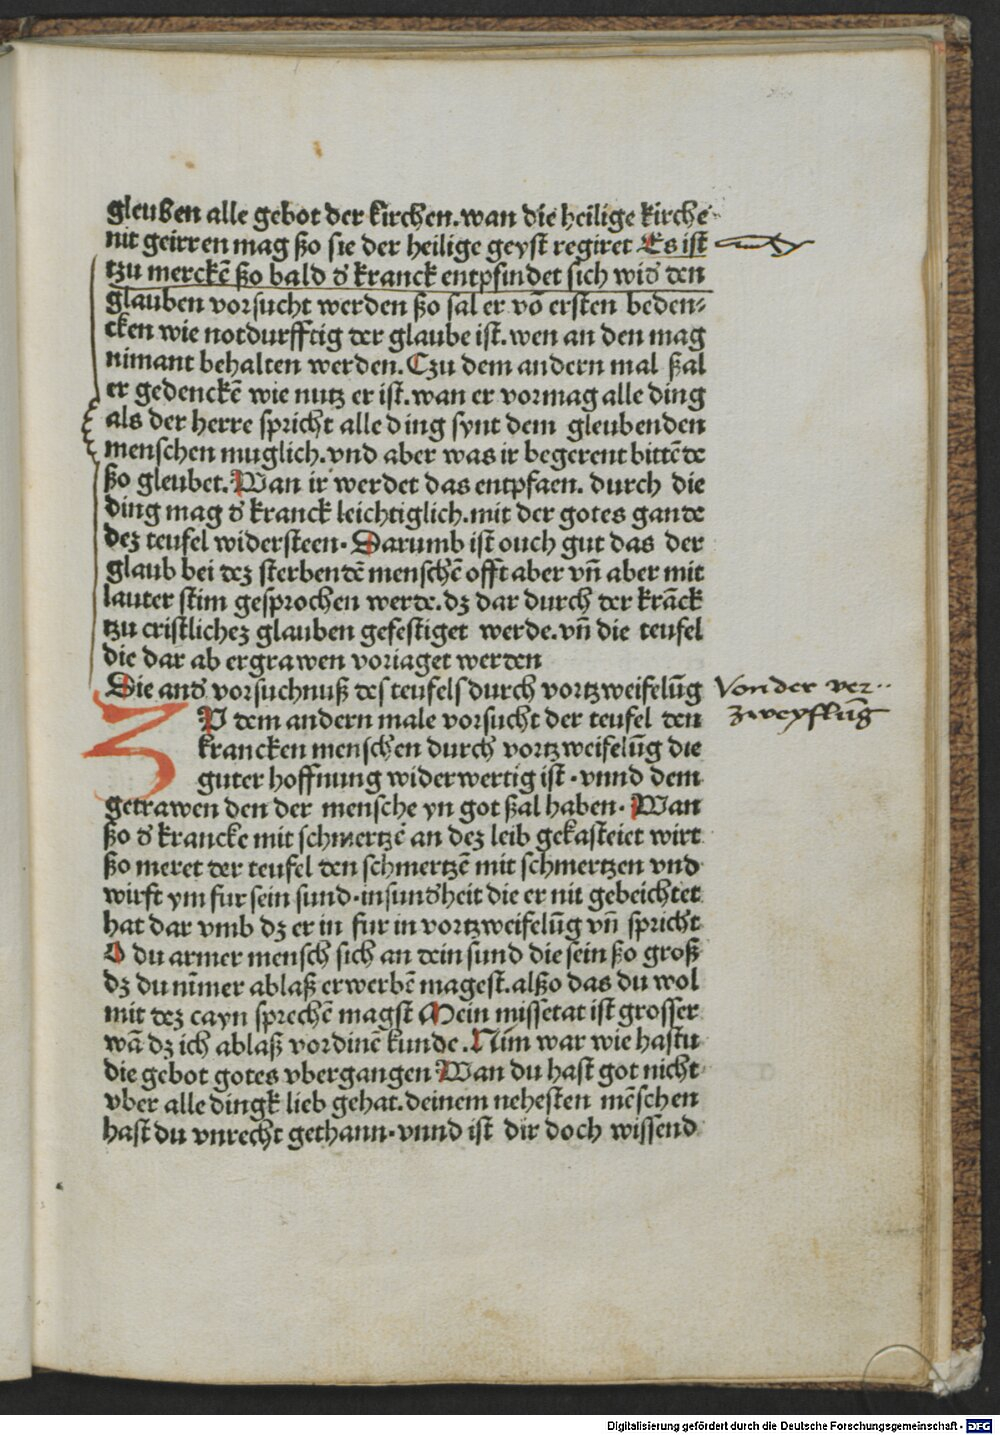 gleuben alle gebot der kirchen.wan die heilige kirche
nit geirren mag ßo sie der heilige geyst regiret Es ist
tzu merckē ßo bald d̕ kranck entpfindet sich wid̕ den
glauben vorsucht werden ßo sal er vō ersten beden⸗
cken wie notdurfftig der glaube ist.wen an den mag
nimant behalten werden.Czu dem andern mal ßal
er gedenckē wie nutz er ist.wan er vormag alle ding
als der herre spricht alle ding synt dem gleubenden
menschen muglich.vnd aber was ir begerent bittēde
ßo gleubet.Wan ir werdet das entpfaen. durch die
ding mag d̕ kranck leichtiglich.mit der gotes gande
dez teufel widersteen. Darumb ist ouch gut das der
glaub bei dez sterbendē menschē offt aber vn̄ aber mit
lauter stim gesprochen werde.dz dar durch der krāck
tzu cristlichez glauben gefestiget werde.vn̄ die teufel
die dar ab ergrawen voriaget werden
Die and̕ vorsuchnuß des teufels durch vortzweifelūg
Von der ver..
zweyflūg
ZU dem andern male vorsucht der teufel den
krancken menschen durch vortzweifelūg die
guter hoffnung widerwertig ist .vnnd dem
getrawen den der mensche yn got ßal haben. Wan
ßo d̕ krancke mit schmertzē an dez leib gekasteiet wirt
ßo meret der teufel den schmertzē mit schmertzen vnd
wirft ym fur sein sund.insund̕heit die er nit gebeichtet
hat dar vmb dz er in fur in vortzweifelūg vn̄ spricht
O du armer mensch sich an dein sund die sein ßo groß
dz du nīmer ablaß erwerbē magest.alßo das du wol
mit dez cayn sprechē magst Mein missetat ist grosser
wā dz ich ablaß vordinē kunde.Nim war wie hastu
die gebot gotes vbergangen Wan du hast got nicht
vber alle dingk lieb gehat.deinem nehesten mēschen
hast du vnrecht gethann.vnnd ist dir doch wissend
Digitalisierung gefördert durch die Deutsche Forschungsgemeinschaft - DFG